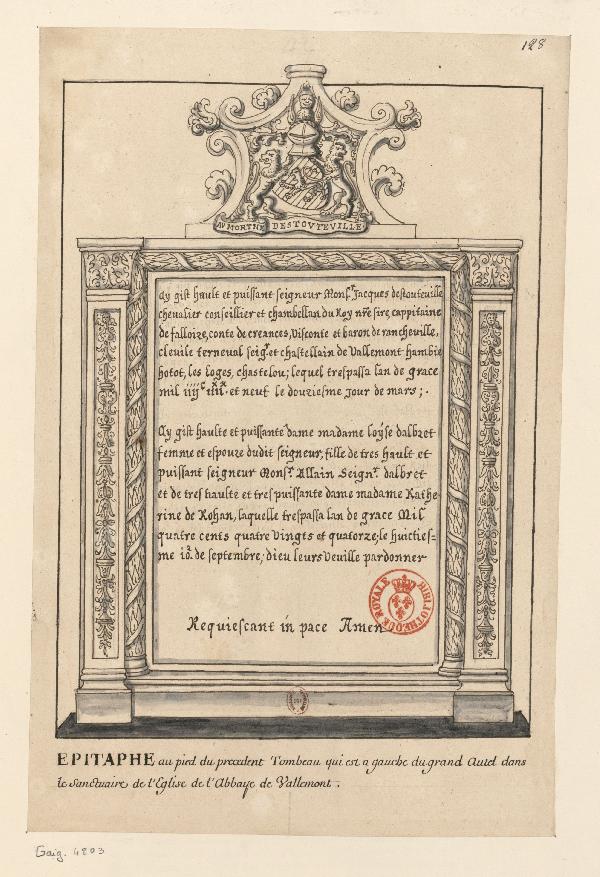 128
AV MORTHE DESTOVTEVILLE
Cy gist hault et puissant seigneur Monsr. Jacques destouteuille
chevalier conseillier et chambellan du Roy nre sire, cappitaine
de falloize, conte de creances, Visconte et baron de rancheville,
cleuile terneval seigr. et chastellain de Vallemont hambie
hotot, les loges, chastelou; lequel trespassa lan de grace
mil iiijc iiijxx et neuf le douziesme jour de mars;
Cy gist haulte et puissante dame madame loyse dalbret
femme et espouze dudit seigneur, fille de tres hault et
puissant seigneur Monsr. Allain Seignr. dalbret
et de tres haulte et tres puissante dame madame Kathe
rine de Rohan, laquelle trespassa lan de grace Mil
quatre cents quatre Vingts et quatorze, le huicties=
me ior. de septembre, dieu leurs veuille pardonner
Requiescant in pace Amen
BIBLIOTHEQUE ROYALE
EPITAPHE au pied du precedent Tombeau qui est a gauche du grand Autel dans
le Sanctuaire de l'Eglise de l'Abbaye de Vallemont.
Gaig. 4203